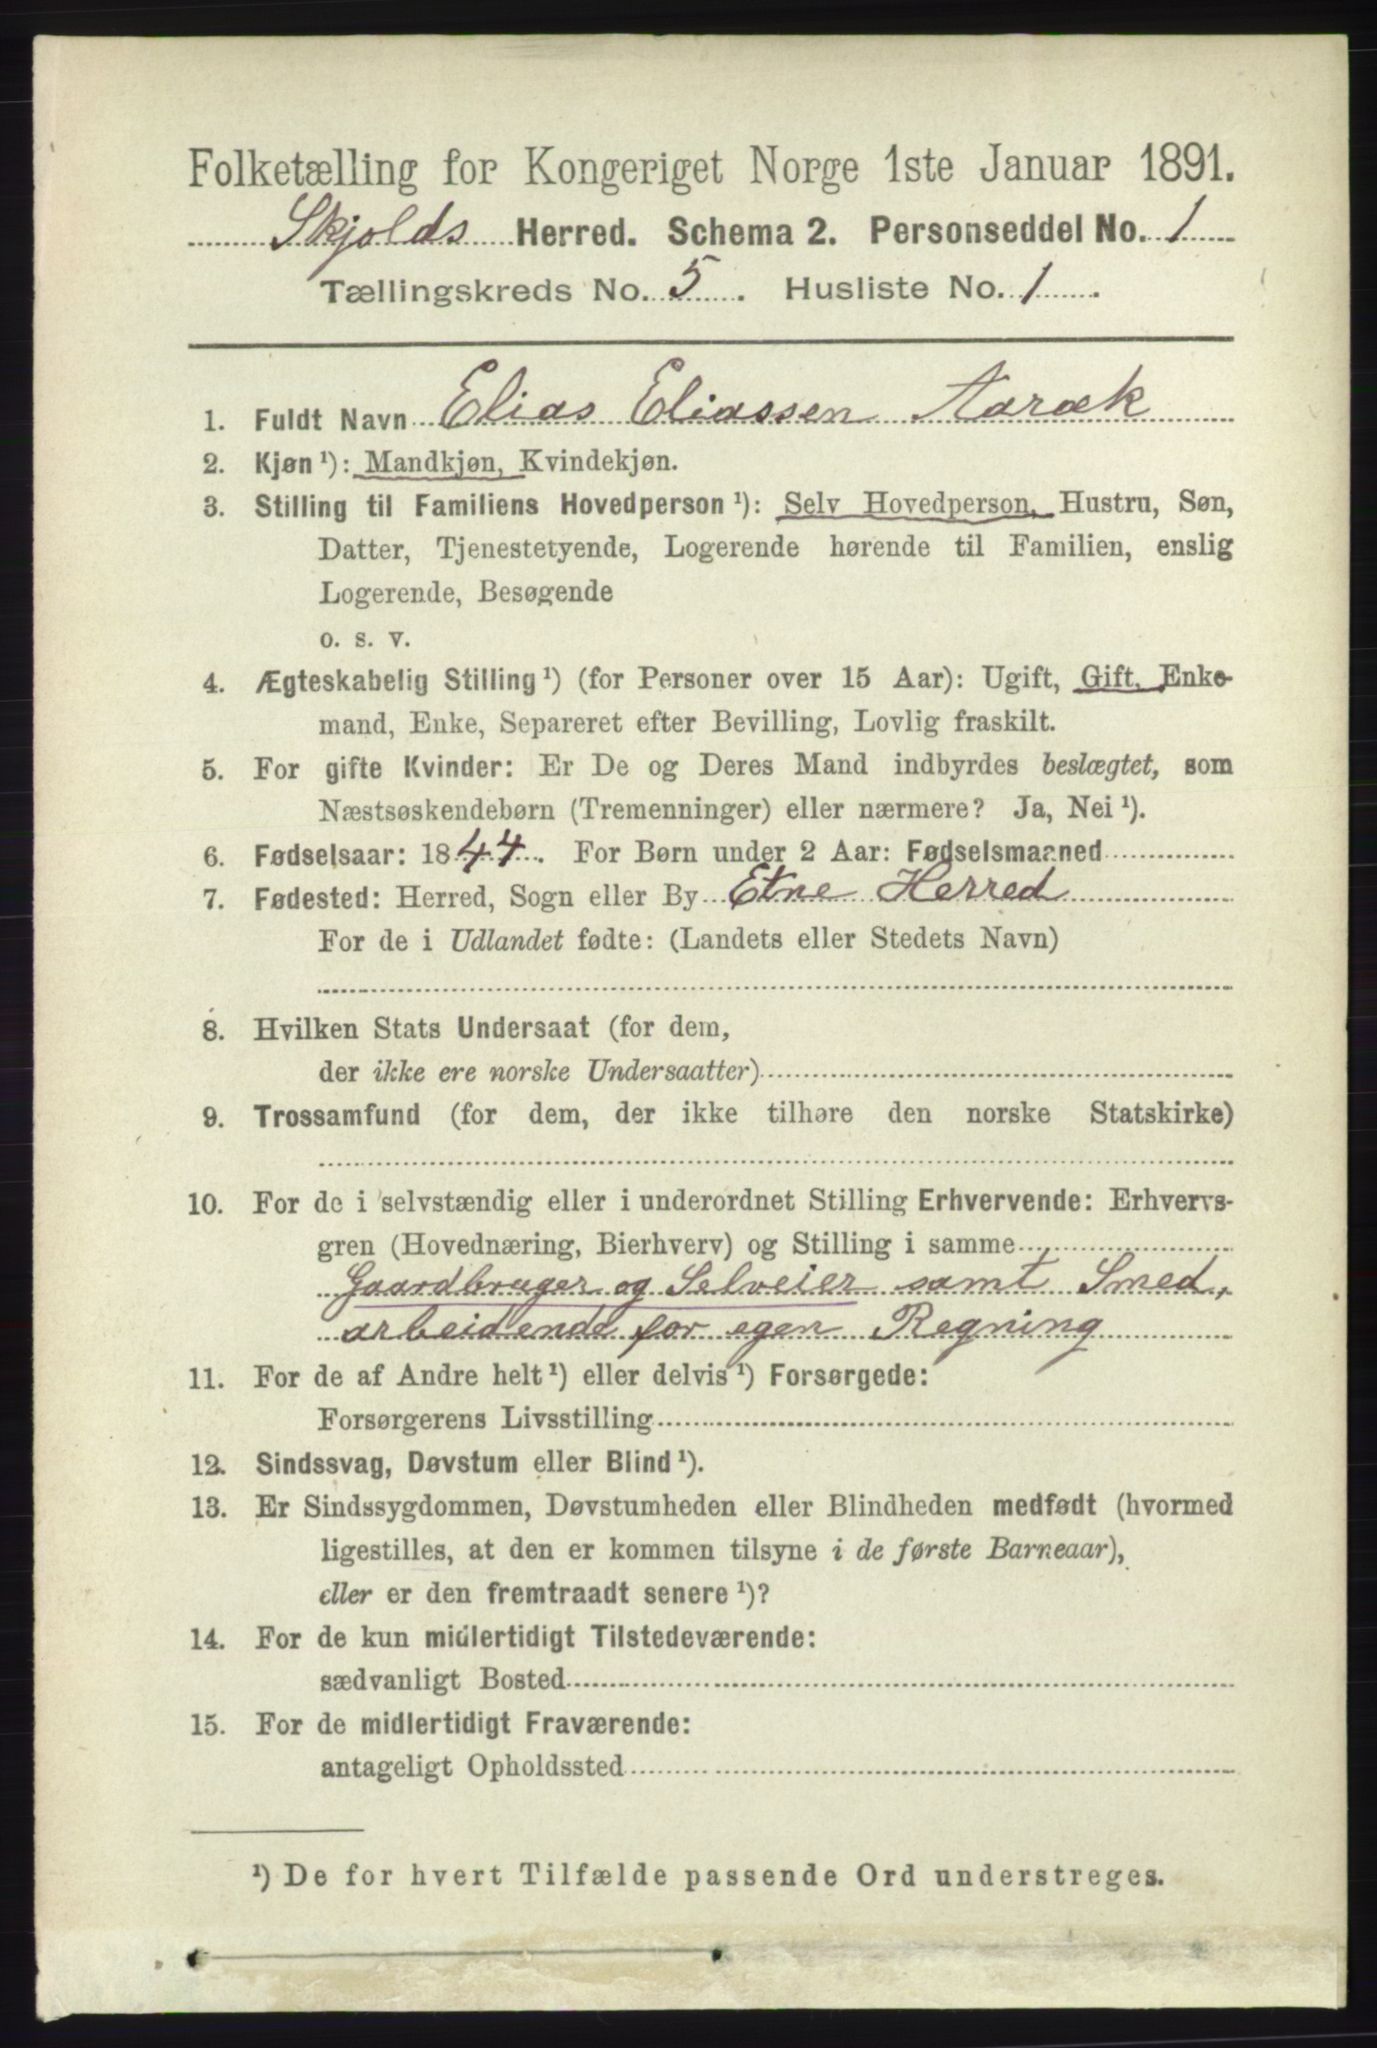 Folketælling for Kongeriget Norge 1ste Januar 1891.
Skjolds Herred. Schema 2. Personseddel No. 1
Tællingskreds No. 5. Husliste No. 1.
1. Fuldt Navn Elias Eliassen Aaræk
2. Kjøn ¹): Mandkjøn, Kvindekjøn.
3. Stilling til Familiens Hovedperson ¹): Selv Hovedperson, Hustru, Søn,
Datter, Tjenestetyende, Logerende hørende til Familien, enslig
Logerende, Besøgende
o. s. v.
4. Ægteskabelig Stilling ¹) (for Personer over 15 Aar): Ugift, Gift, Enke-
mand, Enke, Separeret efter Bevilling, Lovlig fraskilt.
5. For gifte Kvinder: Er De og Deres Mand indbyrdes beslægtet, som
Næstsøskendebørn (Tremenninger) eller nærmere? Ja, Nei ¹).
6. Fødselsaar: 1844. For Børn under 2 Aar: Fødselsmaaned
7. Fødested: Herred, Sogn eller By Etne Herred
For de i Udlandet fødte: (Landets eller Stedets Navn)
8. Hvilken Stats Undersaat (for dem,
der ikke ere norske Undersaatter)
9. Trossamfund (for dem, der ikke tilhøre den norske Statskirke)
10. For de i selvstændig eller i underordnet Stilling Erhvervende: Erhvervs-
gren (Hovednæring, Bierhverv) og Stilling i samme
Gaardbruger og Selveier samt Smed,
arbeidende for egen Regning
11. For de af Andre helt ¹) eller delvis ¹) Forsørgede:
Forsørgerens Livsstilling
12. Sindssvag, Døvstum eller Blind ¹).
13. Er Sindssygdommen, Døvstumheden eller Blindheden medfødt (hvormed
ligestilles, at den er kommen tilsyne i de første Barneaar),
eller er den fremtraadt senere ¹)?
14. For de kun midlertidigt Tilstedeværende:
sædvanligt Bosted
15. For de midlertidigt Fraværende:
antageligt Opholdssted
¹) De for hvert Tilfælde passende Ord understreges.